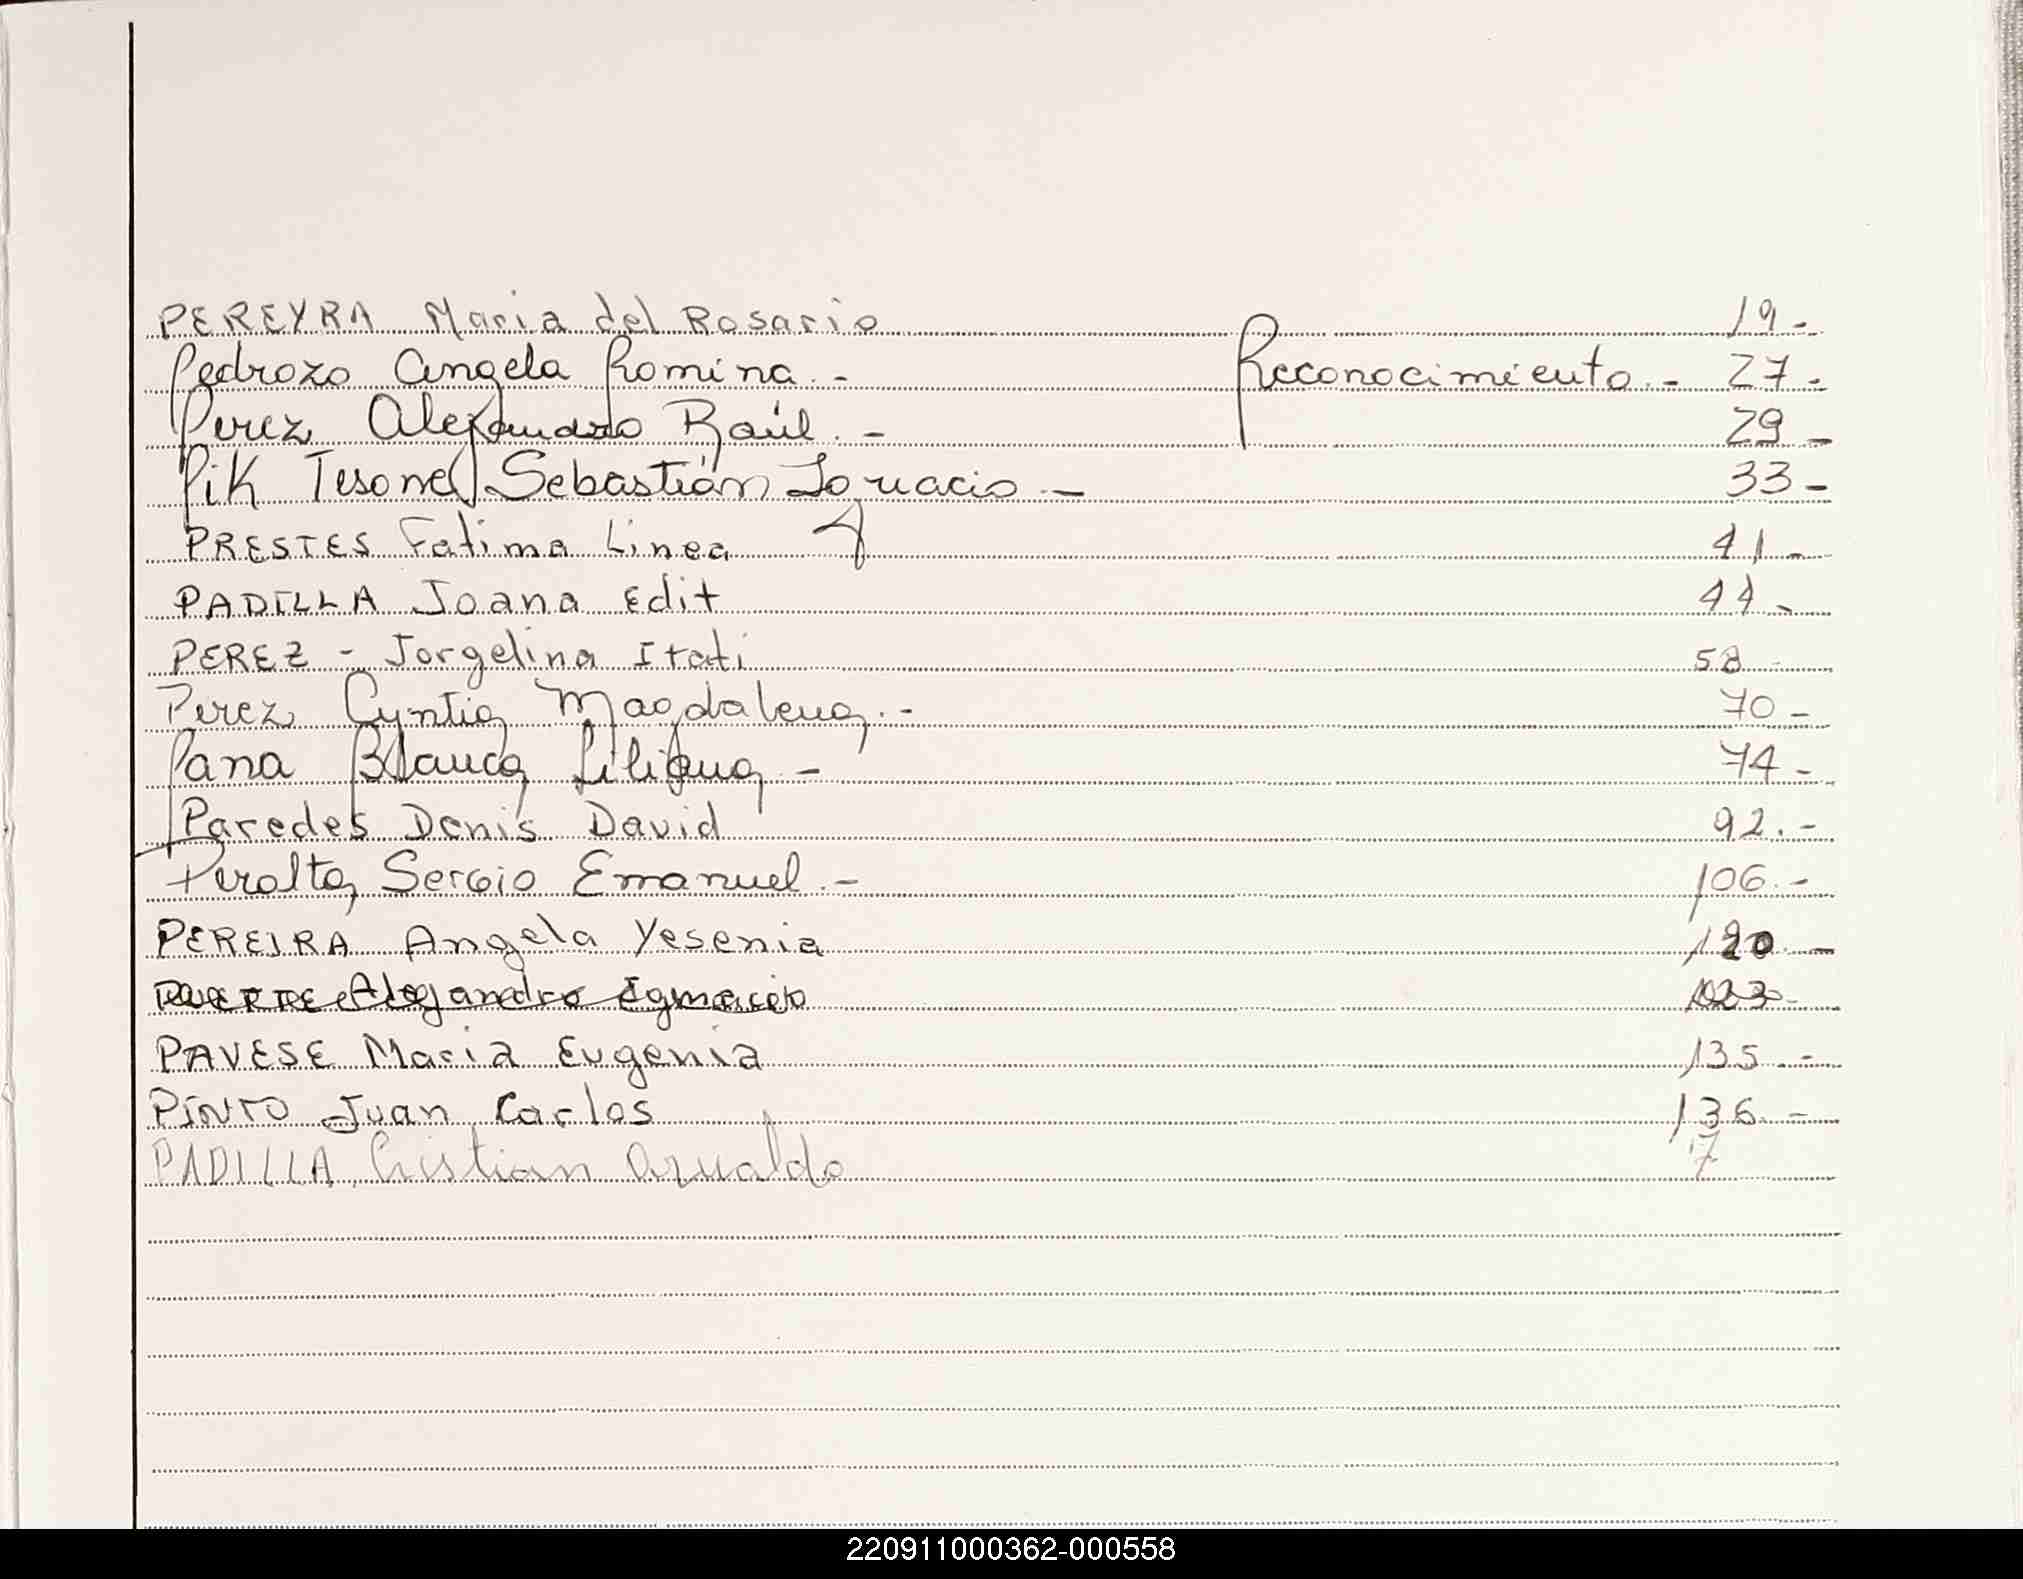 PEREYRA Maria del Rosario 19-
Pedrozo Angela Romina.- Reconocimiento.- 27-
Perez Alejandro Raúl.- 29-
Pik Tesone Sebastián Ignacio.- 33-
PRESTES Fatima Linea 41-
PADILLA Joana Edit 44-
PEREZ - Jorgelina Itati 58-
Perez Cyntia Magdalena.- 70-
Pana Blanca Liliana- 74-
Paredes Denis David 92.-
Peralta Sergio Emanuel.- 106.-
PEREIRA Angela Yesenia 120-
Alejandro Ignacio
PAVESE Maria Eugenia 135.-
PINTO Juan Carlos 136.-
PADILLA, Cristian Osvaldo 17
220911000362-000558